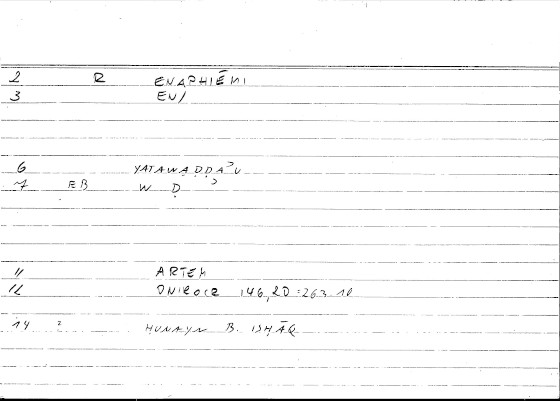 2 R ENAPHIĒMI
3 EN/
6 YATAWAḌḌAʾU
7 EB W Ḍ ʾ
11 ARTEM
12 ONIROCR 146,20 = 263.10
14 : HUNAYN B. ISHĀQ